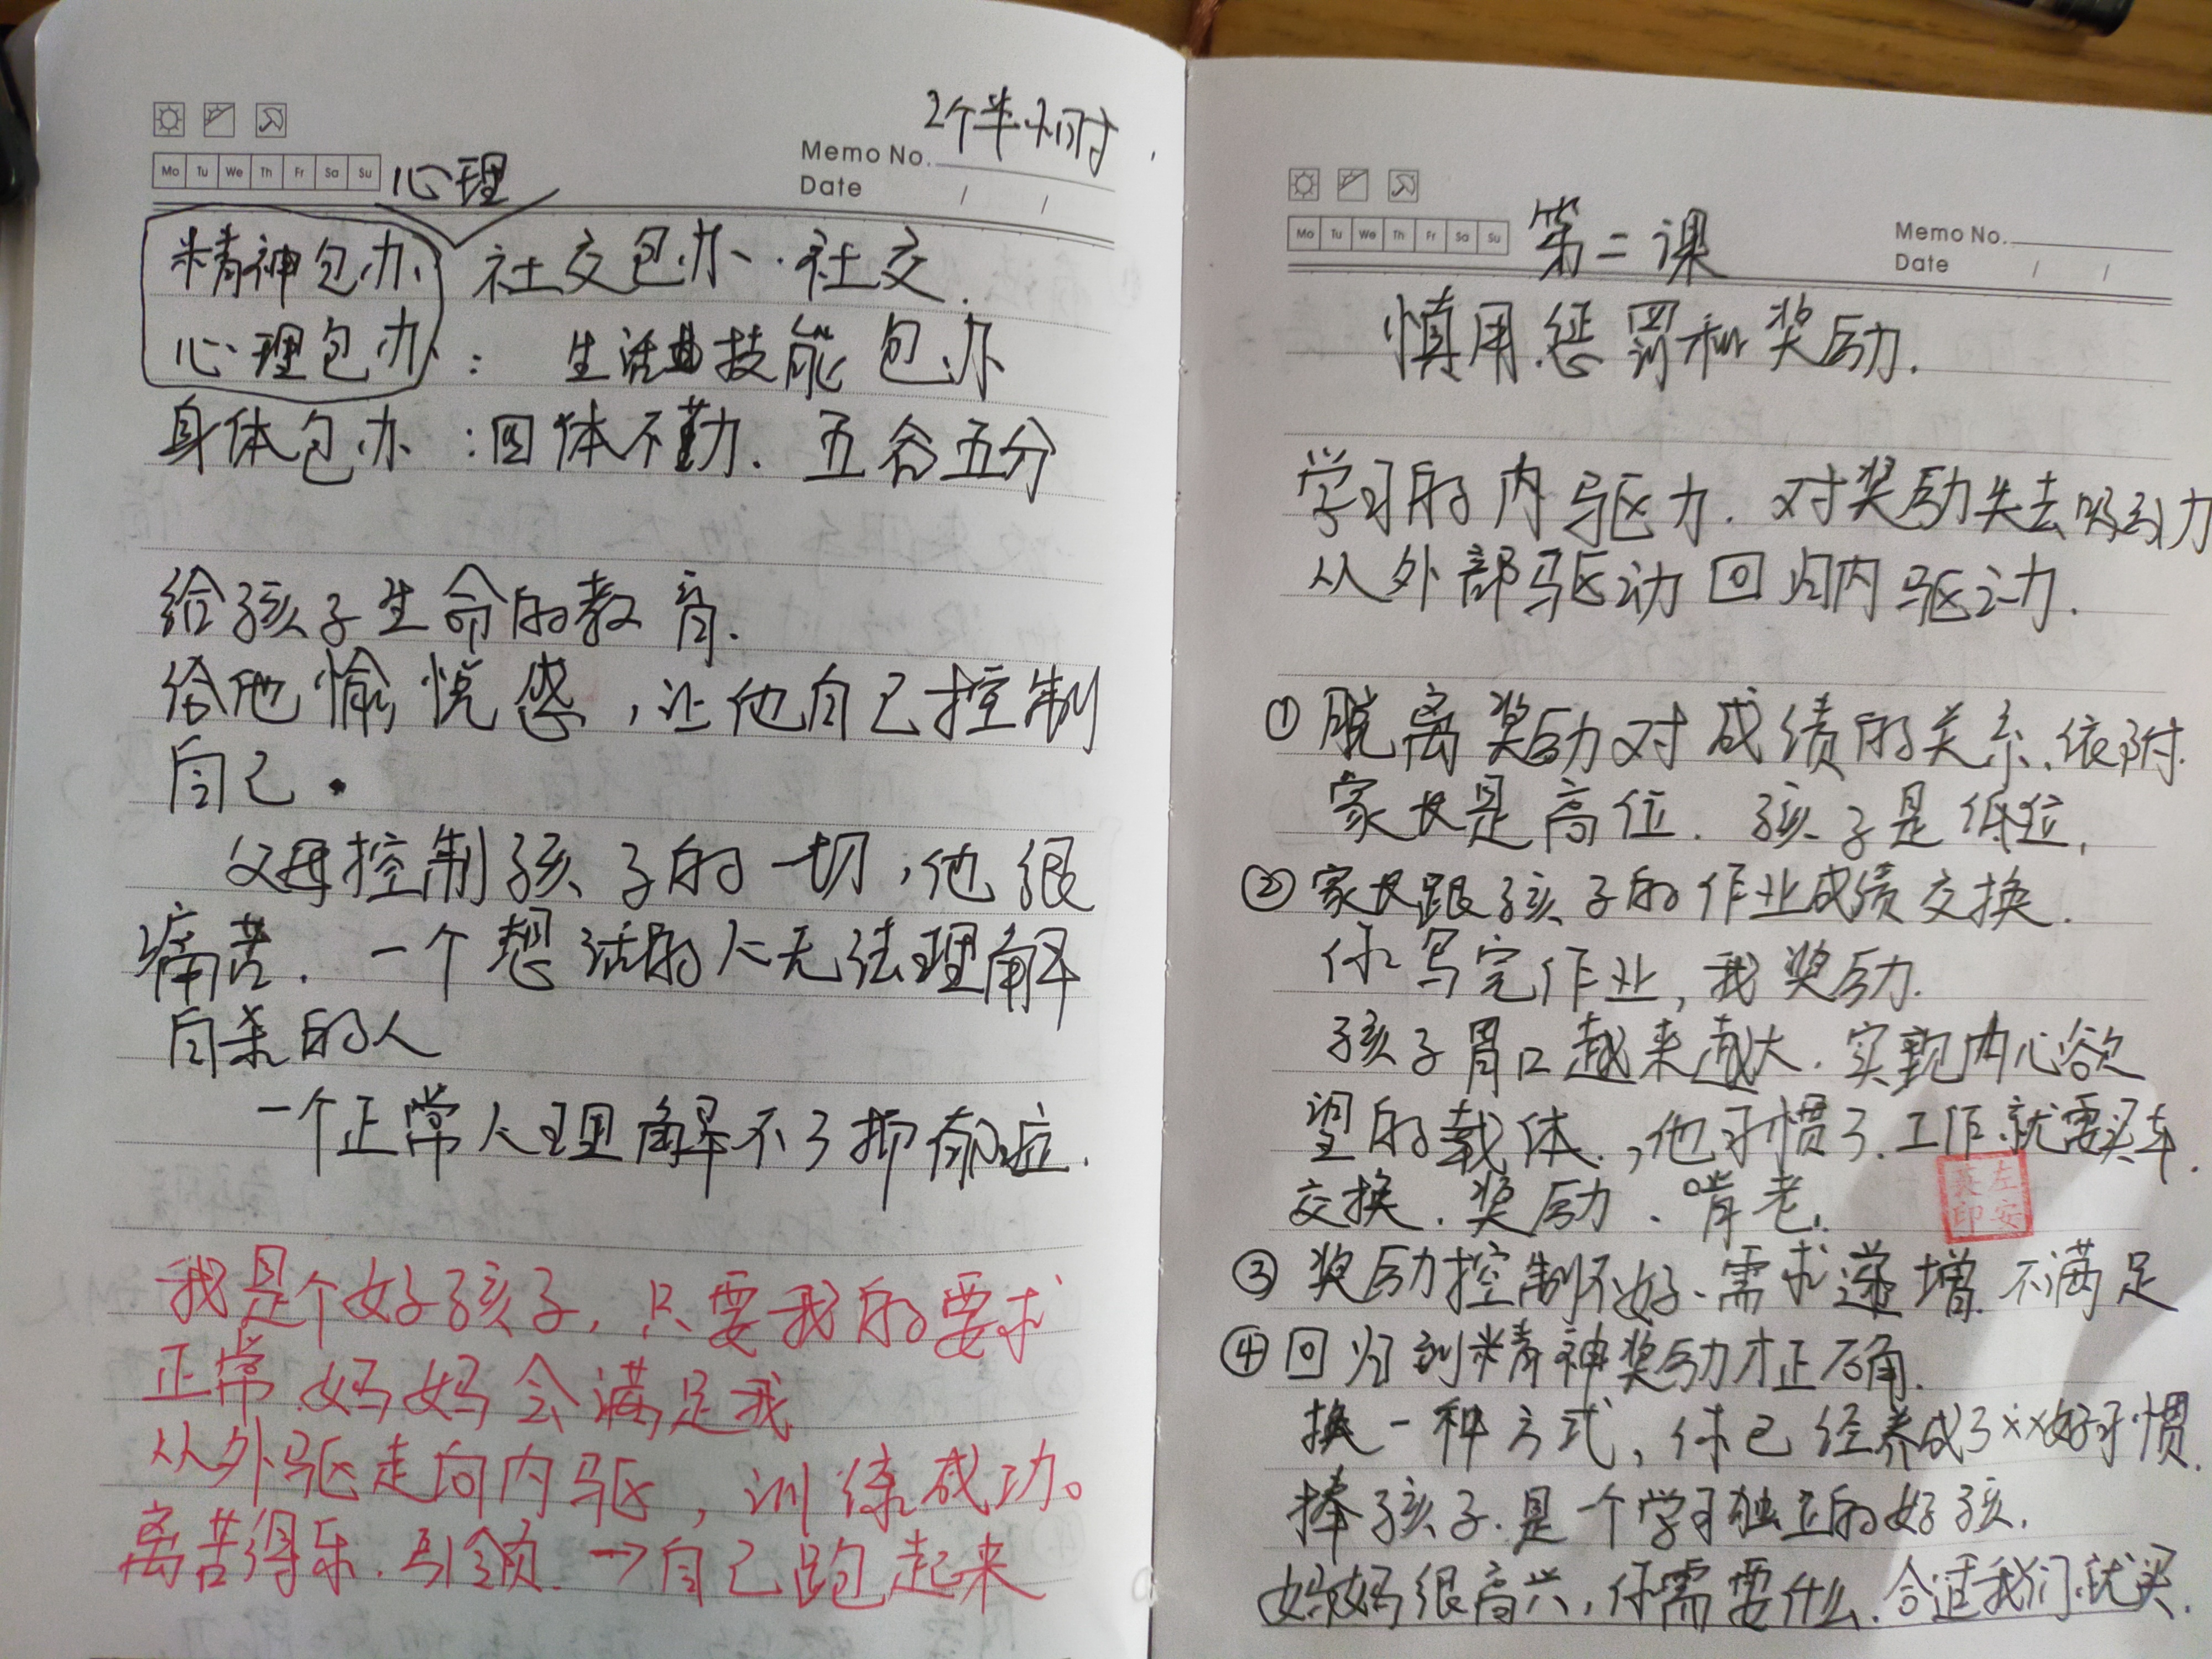 2个半小时
Memo No.
Date / /
Mo Tu We Th Fr Sa Su
心理
精神包办 社交包办.社交.
心理包办: 生活技能包办
身体包办:四体不勤.五谷五分
给孩子生命的教育.
给他愉悦感,让他自己控制
自己.
父母控制孩子的一切,他很
痛苦.一个想活的人无法理解
自杀的人
一个正常人理解不了抑郁症.
我是个好孩子,只要我的要求
正常.妈妈会满足我
从外驱走向内驱,训练成功。
离苦得乐.引领.→自己跑起来
Mo Tu We Th Fr Sa Su
第二课
Memo No.
Date / /
慎用惩罚和奖励.
学习的内驱力.对奖励失去吸引力
从外部驱动回归内驱动.
①脱离奖励对成绩的关系、依附.
家长是高位.孩子是低位,
②家长跟孩子的作业成绩交换.
你写完作业,我奖励.
孩子胃口越来越大.实现内心欲
望的载体.,他习惯了.工作.就要买车.
交换.奖励、啃老.
左安
印
③奖励控制不好、需求递增.不满足
④回归到精神奖励才正确.
换一种方式,你已经养成了××好习惯.
捧孩子.是个学习独立的好孩.
妈妈很高兴,你需要什么.合适我们就买.